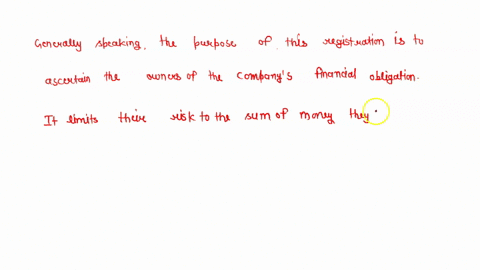 Generally speaking, the purpose of this registration is to
ascertain the owners of the company's financial obligation.
It limits their risk to the sum of money they